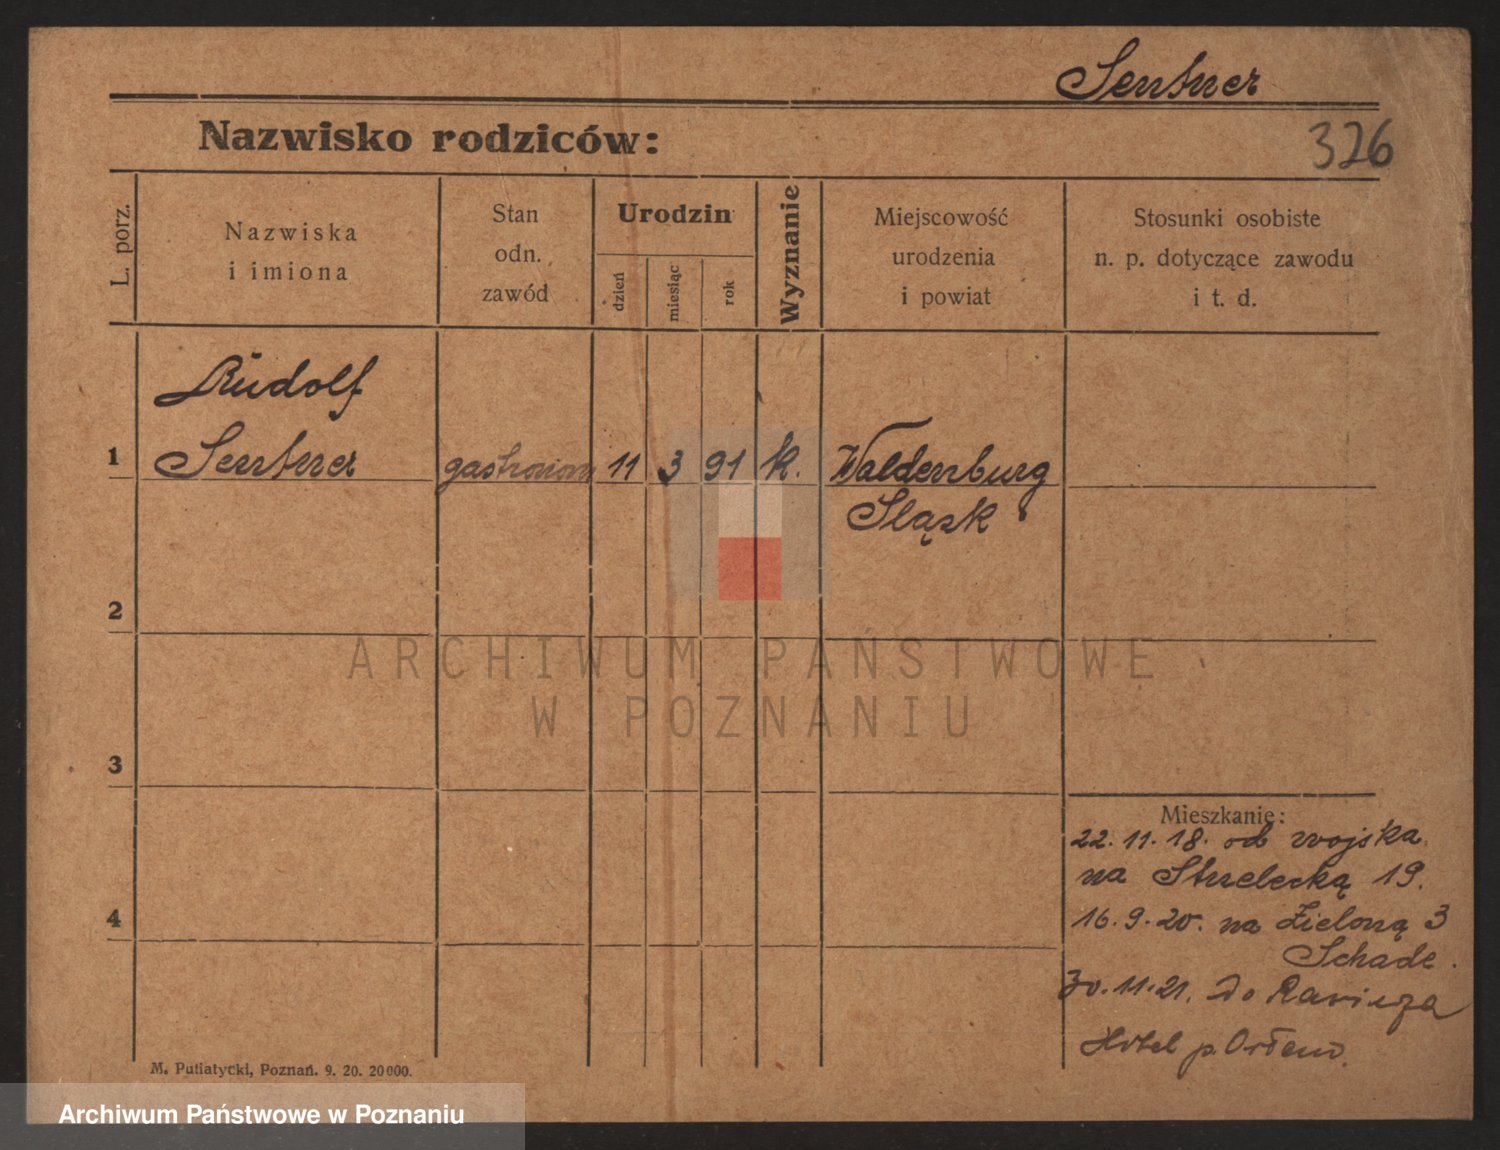 Sentner
Nazwisko rodziców:
326
L. porz.
Nazwiska
i imiona
Stan
odn.
zawód
Urodzin
dzień
miesiąc
rok
Wyznanie
Miejscowość
urodzenia
i powiat
Stosunki osobiste
n. p. dotyczące zawodu
i t. d.
Rudolf
1 Sentner gastronom 11 3 91 k. Waldenburg
Sląsk
2
3
4
Mieszkanie:
22.11.18. od wojska
na Strzelecką 19.
16.9.20. na Zieloną 3
Schade.
30.11.21. do Rawicza
Hotel p. Orłem.
M. Putiatycki, Poznań. 9. 20. 20000.
ARCHIWUM PAŃSTWOWE
W POZNANIU
Archiwum Państwowe w Poznaniu